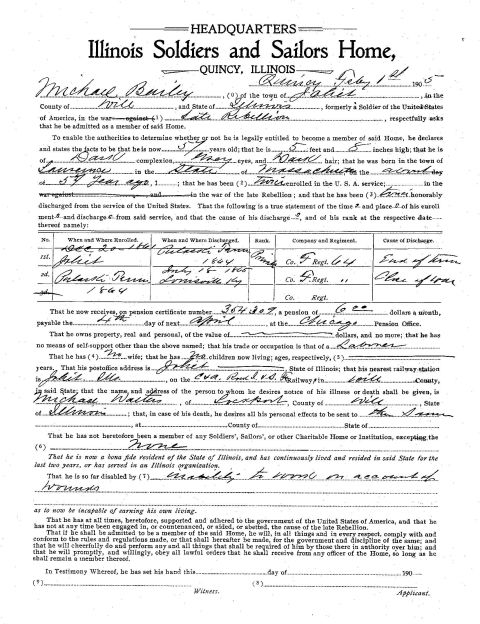 HEADQUARTERS
Illinois Soldiers and Sailors Home,
QUINCY, ILLINOIS
Quincy Feby 1st 1905
Michael Bailey, (9) of the town of Joliet, in the
County of Will, and State of Illinois, formerly a Soldier of the United States
of America, in the war against (3) Late Rebellion, respectfully asks
that he be admitted as a member of said Home.
To enable the authorities to determine whether or not he is legally entitled to become a member of said Home, he declares
and states the facts to be that he is now 57 years old; that he is 5 feet and 8 inches high; that he is
of Dark complexion, Gray eyes, and Dark hair; that he was born in the town of
Lawrence in the State of Massachusetts the about day
of 57 Year ago; that he has been (3) Twice enrolled in the U. S. A. service; in the
war against in the war of the Rebellion; and that he has been (3) honorably
discharged from the service of the United States. That the following is a true statement of the time and place of his enroll
ment and discharge from said service, and that the cause of his discharge, and of his rank at the respective date
thereof namely:
No. When and Where Enrolled. When and Where Discharged. Rank. Company and Regiment. Cause of Discharge.
1st. Dec 20-1861 Joliet Pulaski Tenn 1864 Private Co. F Regt. 64 End of term
2d. Pulaski Tenn 1864 July 18 1865 Louisville Ky Co. F Regt. " Close of war
3d. Co. Regt.
That he now receives, on pension certificate number 304309, a pension of 6 00 dollars a month,
payable the 4th day of next April, at the Chicago Pension Office.
That he owns property, real and personal, of the value of dollars, and no more; that he has
no means of self-support other than the above named; that his trade or occupation is that of a Laborer
That he has (4) No wife; that he has No children now living; ages, respectively, (5)
years. That his postoffice address is Joliet, State of Illinois; that his nearest railway station
is Joliet Ills, on the Railway in Will County,
in said State; that the name and address of the person to whom he desires notice of his illness or death shall be given, is
Michael Walter, of Lockport, County of Will, State
of Illinois; that, in case of his death, he desires all his personal effects to be sent to the same
, at County of State of
That he has not heretofore been a member of any Soldiers', Sailors', or other Charitable Home or Institution, excepting the
(6) None
That he is now a bona fide resident of the State of Illinois, and has continuously lived and resided in said State for the
last two years, or has served in an Illinois organization.
That he is so far disabled by (7) inability to work on account of
wounds
as to now be incapable of earning his own living.
That he has at all times, heretofore, supported and adhered to the government of the United States of America, and that he
has not at any time been engaged in, or countenanced, or aided, or abetted, the cause of the late Rebellion.
That if he shall be admitted to be a member of the said Home, he will, in all things and in every respect, comply with and
conform to the rules and regulations made, or that shall hereafter be made, for the government and discipline of the same; and
that he will cheerfully do and perform any and all things that shall be required of him by those there in authority over him; and
that he will promptly, and willingly, obey all lawful orders that he shall receive from any officer of the Home, so long as he
shall remain a member thereof.
In Testimony Whereof, he has set his hand this day of 190
(9) (8)
Witness. Applicant.